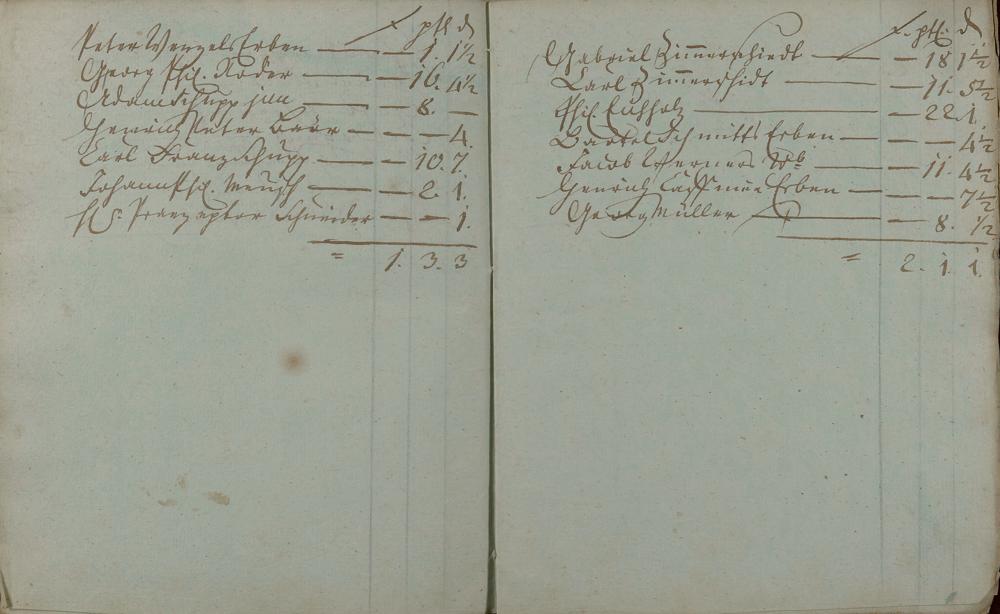 f. ptl. d
Peter Wenzels Erben — — 1. 1½
Georg Phil. Röder — — 16. 4½
Adam Schupp jun — — 8. —
Henrich Peter Baür — — — 4.
Carl Franz Schupp — — 10. 7.
Johann Phil. Mensch — — 2. 1.
Praeceptor Schneider — — — 1.
= 1. 3. 3
f. ptl. d
Gabriel Zimmerschiedt — — 18 1½
Carl Zimmerschidt — — 11. 5½
Phil. Eichholz — — 22. 1.
Bartel Schmitts Erben — — — 4½
Jacob Werners Wb — — 11. 4½
Henrich Erben — — — 7½
Georg Müller — — 8. ½
= 2. 1. 1.